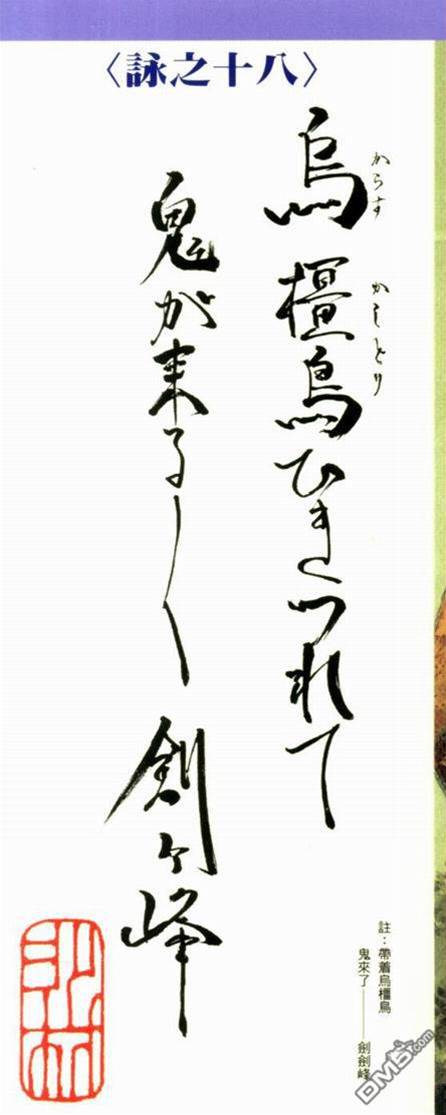 〈詠之十八〉
からす かしどり
烏 橿鳥ひきつれて
鬼が来る〳〵 劍ヶ峰
註：帶着烏橿鳥
鬼來了——劍劍峰
DM5.com